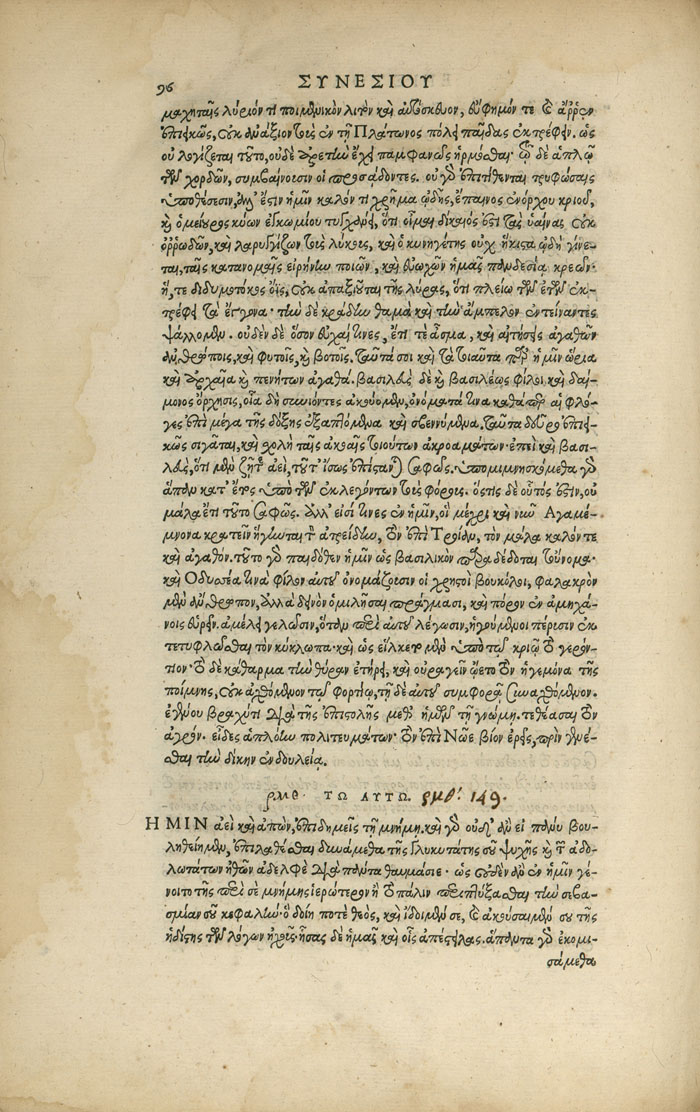 96 ΣΥΝΕΣΙΟΥ
μαχηταῖς λύριόν τι ποιμενικὸν λιτὸν καὶ αὐτόσκευον, εὔφημόν τε καὶ ἄρρεν
ἐπιεικῶς, οὐκ ἀνάξιον τοῖς ἐν τῇ Πλάτωνος πόλει παῖδας ἐκτρέφειν. ὡς
οὐ λογίζεται τοῦτο, οὐδὲ ἀρετὴν ἔχει παμφανῶς ἡρμόσθαι· τῷ δὲ ἁπλῷ
τῶν χορδῶν, συμβαίνουσιν οἱ προσᾴδοντες. οὐ γὰρ ἐπιτίθενται τρυφώσαις
ὑποθέσεσιν, ἀλλ' ἔστιν ἡμῖν καλόν τι χρῆμα ᾠδῆς, ἔπαινος ἐνόρχου κριοῦ,
καὶ ὁ μείουρος κύων ἐγκωμίου τυγχάνει, ὅτι οἶμαι δίκαιός ἐστι τὰς ὑαίνας οὐκ
ὀρρωδῶν, καὶ λαρυγγίζων τοὺς λύκους, καὶ ὁ κυνηγέτης οὐχ ἥκιστα ᾠδὴ γίνε-
ται, ταῖς κατανομαῖς εἰρήνην ποιῶν, καὶ εὐωχῶν ἡμᾶς παντοδεσίᾳ κρεῶν·
ἥ, τε διδυμοτόκος οἶς, οὐκ ἀπαξιοῦται τῆς λύρας, ὅτι πλείω τῶν ἐτῶν ἐκ-
τρέφει τὰ ἔγγονα· τὴν δὲ κράδην θαμὰ καὶ τὴν ἄμπελον ἐντείναντες
ψάλλομεν. οὐδὲν δὲ ὅσον εὐχαί τινες, ἔτι τε ᾆσμα, καὶ αἴτησις ἀγαθῶν
ἀνθρώποις, καὶ φυτοῖς, καὶ βοτοῖς. ταῦτά σοι καὶ τὰ τοιαῦτα παρ' ἡμῖν ὥρια
καὶ ἀρχαῖα καὶ πενήτων ἀγαθά. βασιλεὺς δὲ καὶ βασιλέως φίλοι καὶ δαί-
μονος ὄρχησις, οἷα δὴ συνιόντες ἀκούομεν, ὀνόματά τινα καθάπερ αἱ φλό-
γες ἐπὶ μέγα τῆς δόξης ἐξαπτόμενα καὶ σβεννύμενα, ταῦτα δεῦρο ἐπιει-
κῶς σιγᾶται, καὶ σχολὴ ταῖς ἀκοαῖς τοιούτων ἀκροαμάτων· ἐπεὶ καὶ βασι-
λεὺς, ὅτι μὲν ζῇ τις ἀεὶ, τοῦτ' ἴσως ἐπίστανται σαφῶς. ὑπομιμνησκόμεθα γὰρ
ἀνὰ πᾶν κατ' ἔτος ὑπὸ τῶν ἐκλεγόντων τοὺς φόρους. ὅστις δὲ οὗτός ἐστιν, οὐ
μάλα ἔτι τοῦτο σαφῶς. ἀλλ' εἰσί τινες ἐν ἡμῖν, οἳ μέχρι καὶ νῦν Ἀγαμέ-
μνονα κρατεῖν ἥγηνται τὸν ἀτρείδην, τὸν ἐπὶ Τροίαν, τὸν μάλα καλόν τε
καὶ ἀγαθόν. τοῦτο γὰρ παιδόθεν ἡμῖν ὡς βασιλικὸν παραδέδοται τοὔνομα·
καὶ Ὀδυσέα τινα φίλον αὐτοῦ ὀνομάζουσιν οἱ χρηστοὶ βουκόλοι, φαλακρὸν
μὲν ἄνθρωπον, ἀλλὰ δεινὸν ὁμιλῆσαι πράγμασι, καὶ πόρον ἐν ἀμηχά-
νοις εὑρεῖν. ἀμέλει γελῶσιν, ὅταν περὶ αὐτοῦ λέγωσιν, ἡγούμενοι πέρυσιν ἐκ-
τετυφλῶσθαι τὸν κύκλωπα· καὶ ὡς εἵλκετο μὲν ὑπὸ τῷ κριῷ τὸ γερόν-
τιον· τὸ δὲ κάθαρμα τὴν θύραν ἐτήρει, καὶ οὐραγεῖν ᾤετο τὸν ἡγεμόνα τῆς
ποίμνης, οὐκ ἀχθόμενον τῷ φορτίῳ, τῇ δὲ αὐτοῦ συμφορᾷ συναχθόμενον.
ἐγένου βραχύ τι διὰ τῆς ἐπιστολῆς μεθ' ἡμῶν τῇ γνώμῃ. τεθέασαι τὸν
ἀγρόν. εἶδες ἁπλόην πολιτευμάτων· τὸν ἐπὶ Νῶε βίον ἐρεῖς, πρὶν γενέ-
σθαι τὴν δίκην ἐν δουλείᾳ.
ρμθ. ΤΩ ΑΥΤΩ. ρμθ'. 149.
ΗΜΙΝ ἀεὶ καὶ ἀπὼν, ἐπιδημεῖς τῇ μνήμῃ. καὶ γὰρ οὐδ' ἂν εἰ πάνυ βου-
ληθείημεν, ἐπιλαθέσθαι δυνάμεθα τῆς γλυκυτάτης σοῦ ψυχῆς καὶ τῶν ἀδο-
λωτάτων ἠθῶν ἀδελφὲ διὰ πάντα θαυμάσιε· ὡς οὐδὲν ἂν ἐν ἡμῖν γέ-
νοιτο τῆς περὶ σὲ μνήμης ἱερώτερον ἢ τὸ πάλιν περιπτύξασθαι τὴν σεβα-
σμίαν σοῦ κεφαλήν· ὃ δοίη ποτὲ θεὸς, καὶ ἴδοιμέν σε, καὶ ἀκούσαιμέν σου τῆς
ἡδίστης τῶν λόγων ἠχοῦς· ἧσας δὲ ἡμᾶς καὶ οἷς ἀπέστειλας. ἅπαντα γὰρ ἐκομι-
σάμεθα